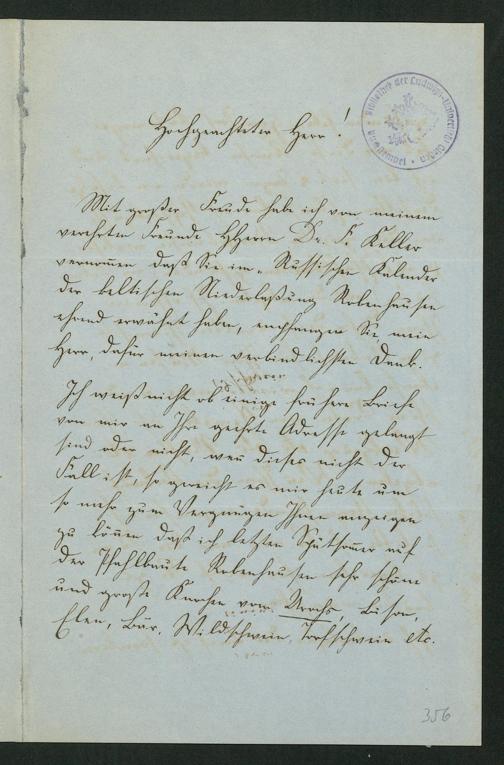 Hochgeachteter Herr!
Mit großer Freude habe ich von meinem
verehrten Freunde HHerrn Dr. F. Keller
vernommen daß Sie im „Russischen Kalender
der keltischen Niederlaßung Robenhausen
ehrend erwähnt haben, empfangen Sie mein
Herr, dafür meinen verbindlichsten Dank.
Ich weiß nicht ob einige frühere Briefe
von mir an Ihre geehrte Adresse gelangt
sind oder nicht, wen dieses nicht der
Fall ist, so gereicht es mir heute um
so mehr zum Vergnügen Ihnen anzeigen
zu könen daß ich letzten Spätsomer auf
der Pfahlbaute Robenhausen sehr schöne
und große Knochen vom Urochs, Bison,
Elen, Bär, Wildschwein, Torfschwein etc.
356